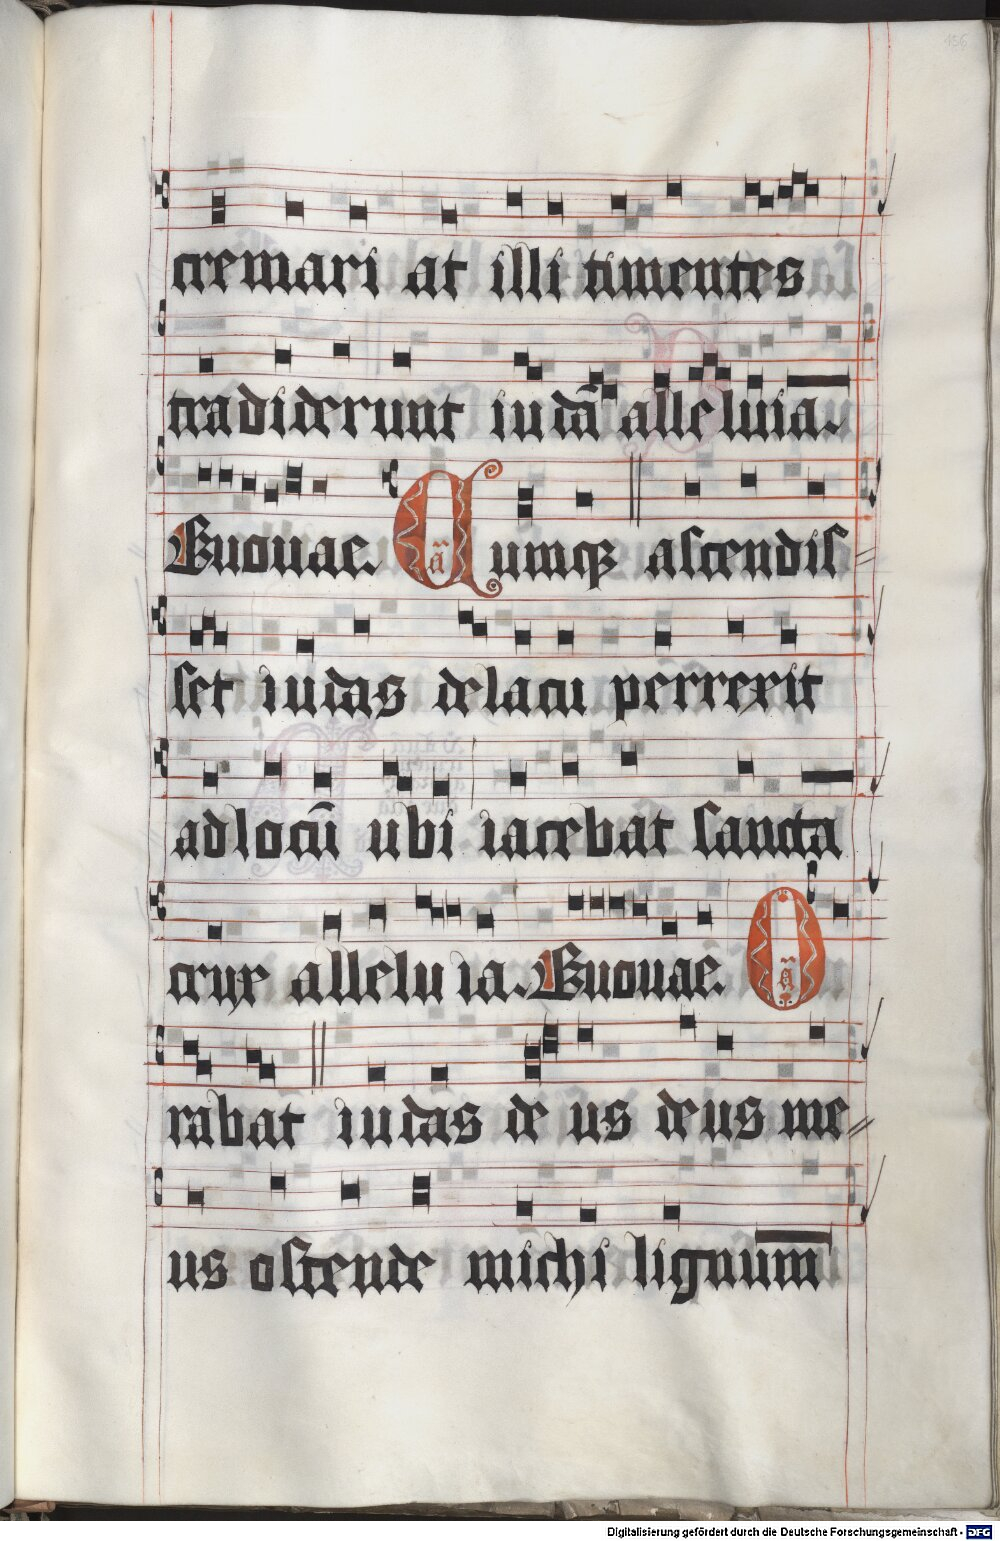 156
cremari at illi timentes
tradiderunt iudā alleluia.
Euouae. Cumqꝫ ascendis//
set iudas de lacu perrexit
ad locū ubi iacebat sancta
crux alleluia. Euouae. O
rabat iudas deus deus me//
us ostende michi lignum
Digitalisierung gefördert durch die Deutsche Forschungsgemeinschaft - DFG